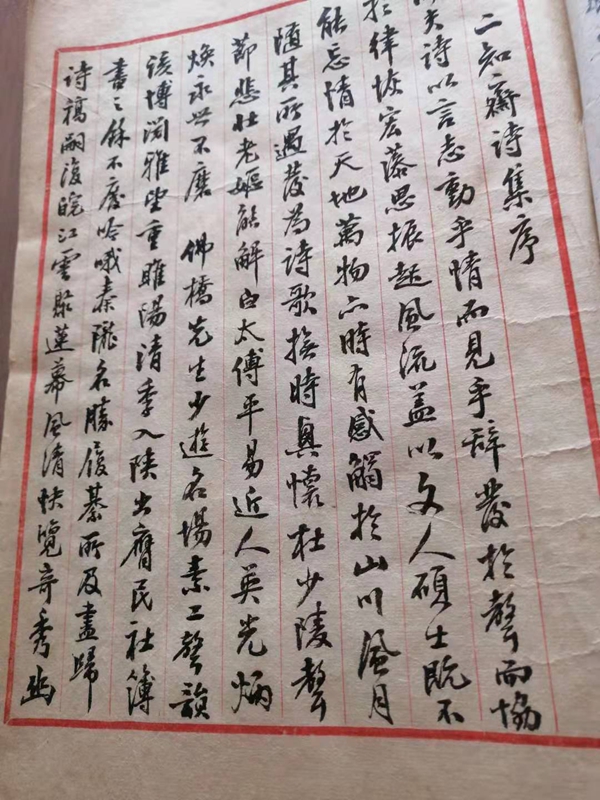 二知齋詩集序
夫詩以言志動乎情而見乎辭發於聲而協
於律恢宏藻思振起風流蓋以文人碩士既不
能忘情於天地萬物亦時有感觸於山川風月
隨其所遇發為詩歌撫時興懷杜少陵聲
節悲壯老嫗能解白太傅平易近人英光炳
煥永世不磨 佛橋先生少遊名場素工聲韻
該博淵雅望重睢陽清季入陝出膺民社簿
書之餘不廢吟哦秦隴名勝履綦所及盡歸
诗稿嗣復皖江雲聚蓮幕風清快覽奇秀幽